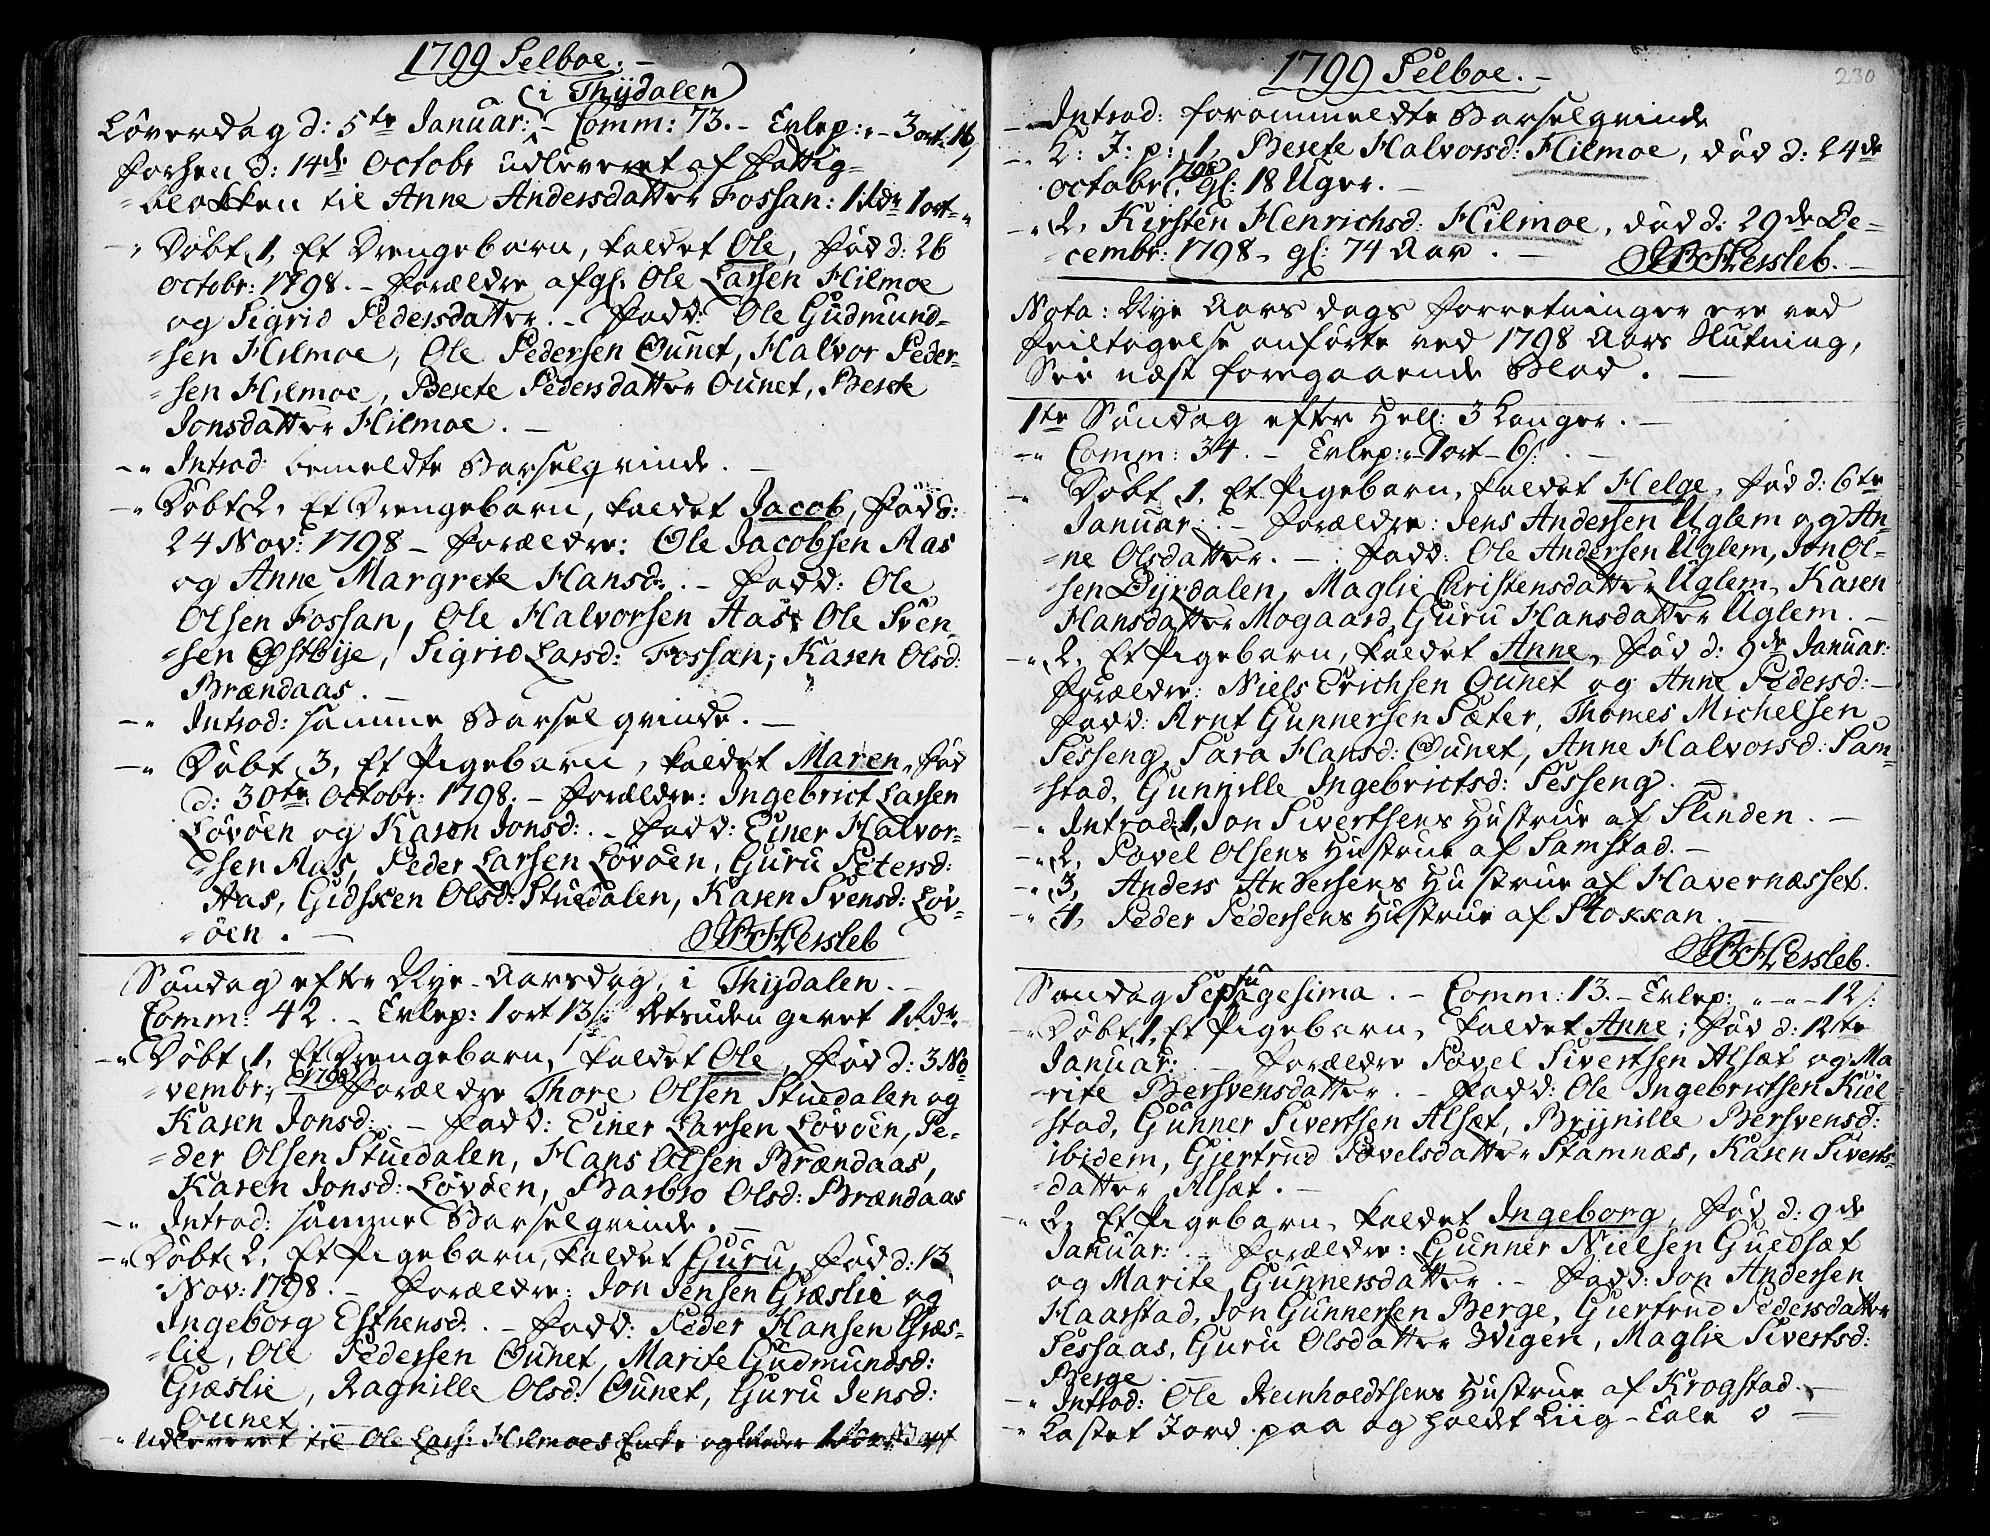 1799 Selboe.
(i Thydalen)
Løverdag d: 5te Januar: - Comm: 73. - Evlep: " - 3 ort 16
forhen d: 14de Octobr udleveret af Fattig=
=blokken til Anne Andersdatter Fossan: 1 Rdr 1 ort - "
- " Døbt 1, Et Drengebarn, kaldet Ole, fød d: 26
Octobr: 1798. - Forældre afg. Ole Larsen Hilmoe
og Sigrid Pedersdatter. - Fadd: Ole Gudmund=
=sen Hilmoe, Ole Pedersen Øunet, Halvor Peder=
=sen Hilmoe, Berete Pedersdatter Ounet, Berete
Jonsdatter Hilmoe. -
- " Introd: bemeldte Barselqvinde. -
- " Døbt 2, Et Drengebarn, kaldet Jacob, fød d:
24 Nov: 1798 - Forældre: Ole Jacobsen Aas
og Anne Margrete Hansd: . - Fadd: Ole
Olsen Fossan, Ole Halvorsen Aas, Ole Sven=
=sen Østbye, Sigrid Larsd: Fossan, Karen Olsd:
Brændaas. -
- " Introd: samme Barselqvinde. -
- " Døbt 3, Et Pigebarn, kaldet Maren, fød
d: 30te Octobr: 1798. - Forældre: Ingebrict Larsen
Løvøen og Karen Jonsd: . - Fadd: Einer Halvor=
=sen Aas, Peder Larsen Løvøen, Guru Petersd:
Aas, Gidsken Olsd: Stuedalen, Karen Svensd: Løv=
=øen. - Hersleb
Søndag efter Nye-Aarsdag, i Thydalen. -
Comm: 42. - Evlep: 1 ort 13 s: desuden givet 1 Rdr.
- " Døbt 1, Et Drengebarn, kaldet Ole, fød d: 3 No=
=vembr: 1798 Forældre Thore Olsen Stuedalen og
Karen Jonsd: . - Fadd: Einer Larsen Løvøen, Pe=
=der Olsen Stuedalen, Hans Olsen Brændaas,
Karen Jonsd: Løvøen, Barbro Olsd: Brændaas
- " Introd: samme Barselqvinde. -
- " Døbt 2, Et Pigebarn, kaldet Guru, fød d: 13
Nov: 1798. - Forældre: Jon Jensen Græslie og
Ingeborg Esthensd. . - Fadd: Peder Hansen Græs=
=lie, Ole Pedersen Ounet, Marite Gudmundsd:
Græslie, Ragnille Olsd: Ounet, Guru Jensd:
Ounet. -
- " Udleveret til Ole Lars: Hilmoes Enke
1799 Selboe. -
230
- " Introd: forommeldte Barselqvinde
- " K: J: p: 1, Berete Halvorsd: Hilmoe, død d: 24de
octobr: 1798 gl: 18 Uger. -
- " 2, Kirsten Henrichsd: Hilmoe, død d: 29de De=
=cembr: 1798 - gl: 74 Aar. - Hersleb. -
Nota: Nye Aars dags forretninger ere ved
feiltagelse anførte ved 1798 Aars Slutning,
See næst foregaaende Blad. -
1te Søndag efter Hell: 3 Konger. -
- " Comm: 34. - Evlep: " 1 ort - 6 s: . -
- " Døbt 1, Et Pigebarn, kaldet Helge, fød d: 6te
Januar: . - Forældre: Jens Andersen Uglem og An=
=ne Olsdatter. - Fadd: Ole Andersen Uglem, Jon Ol=
=sen Dyrdalen, Maglie Christensdatter Uglem, Karen
Hansdatter Mogaard, Guru Hansdatter Uglem. -
- " 2, Et Pigebarn, kaldet Anne, fød d: 9de Januar:
Forældre: Niels Erichsen Ounet og Anne Pedersd: -
Fadd: Arnt Gunnersen Sæter, Thomes Michelsen
Sesseng, Sara Hansd: Ounet, Anne Halvorsd: Sam=
=stad, Gunnille Ingebrictsd: Sesseng. -
- " Introd: 1, Jon Sivertsens Hustrue af Slinden. -
- " 2, Povel Olsens Hustrue af Samstad. -
- " 3, Anders Andersens Hustrue af Havernæsset.
- " 4, Peder Pedersens Hustrue af Stokkan. -
Hersleb.
Søndag Septuagesima. - Comm: 13. - Evlep: " - " - 12 s:
- " Døbt 1, Et Pigebarn, kaldet Anne, fød d: 12te
Januar: . - Forældre Povel Sivertsen Alsæt og Ma
=rite Bersvensdatter. - Fadd: Ole Ingebrictsen Kiel=
=stad, Gunner Sivertsen Alsæt, Brynille Bersvensd:
ibidem, Giertrud Povelsdatter Stamnæs, Karen Siverts=
=datter Alsæt. -
- " 2, Et Pigebarn, kaldet Ingeborg, fød d: 9de
Januar: . - Forældre: Gunner Nielsen Guldsæt
og Marite Gunnersdatter. - Fadd: Jon Andersen
Haarstad, Jon Gunnersen Berge, Giertrud Pedersdatter
Sessaas, Guru Olsdatter Eviger, Maglie Sivertsd:
Berge. -
- " Introd: Ole Reinholdtsens Hustrue af Krogstad. -
- " Kastet Jord paa og holdt Liig-Tale o -